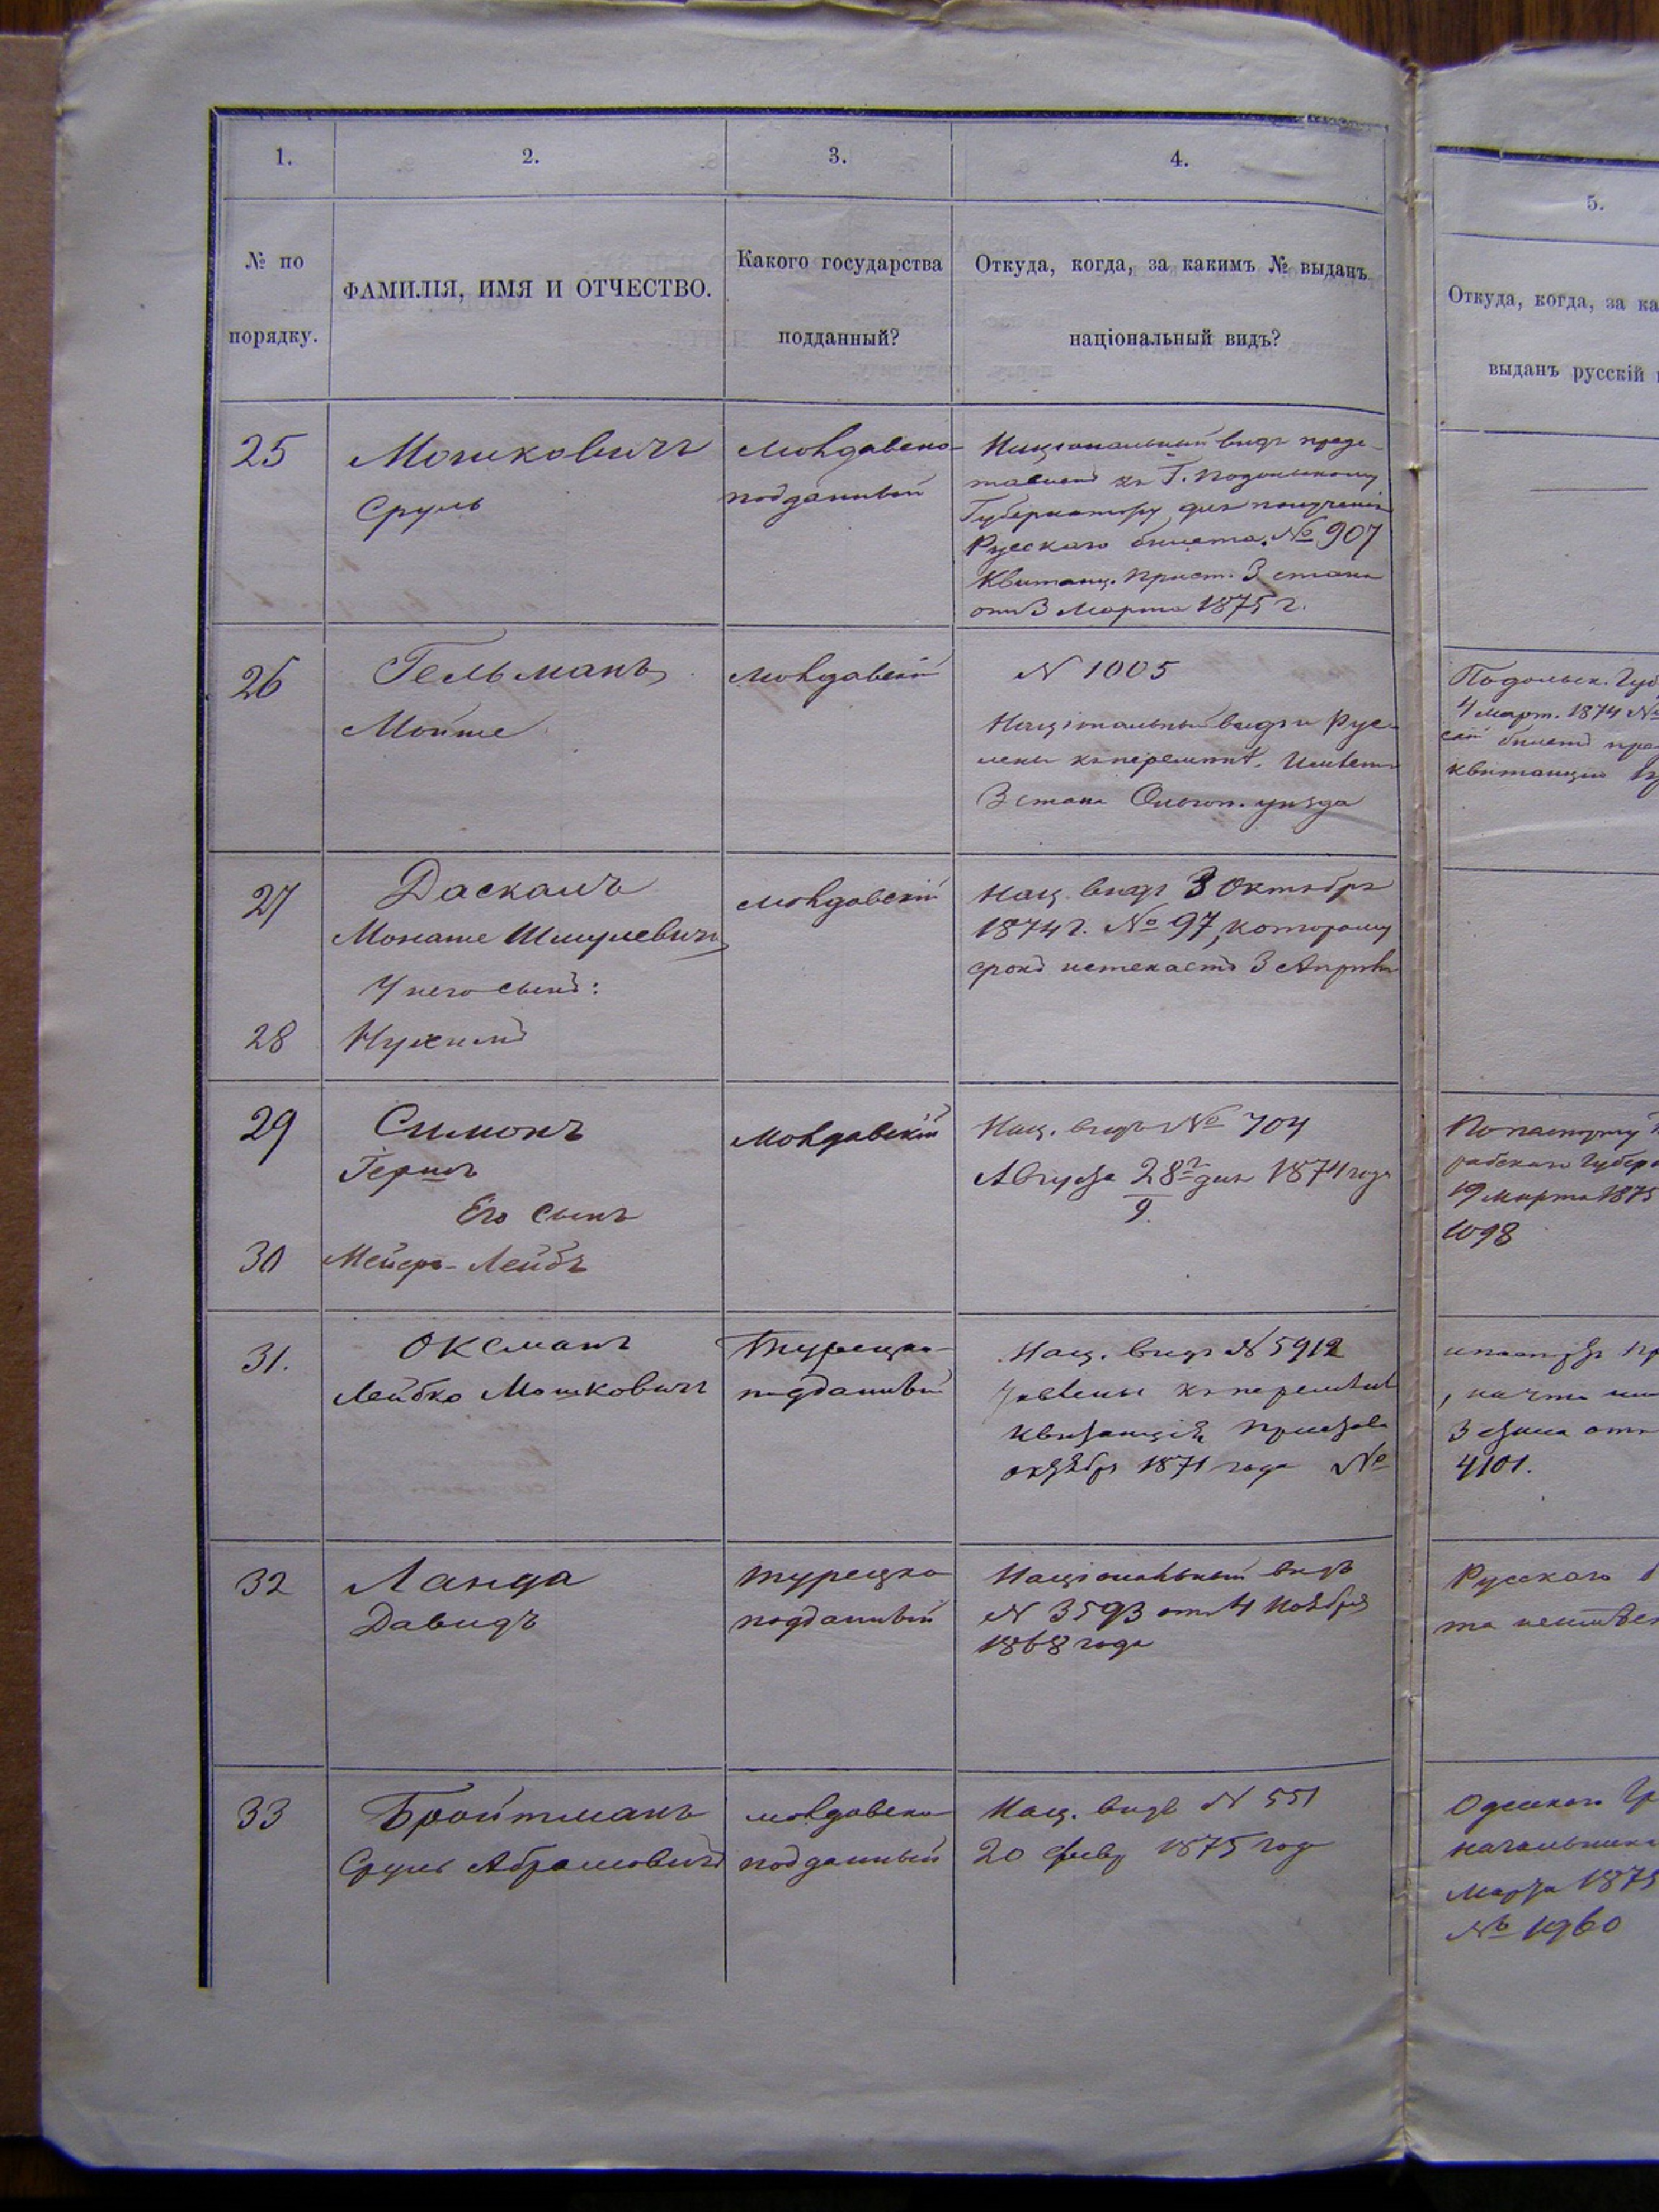 1.
2.
3.
4.
5.
№ по
порядку.
ФАМИЛІЯ, ИМЯ И ОТЧЕСТВО.
Какого государства
подданный?
Откуда, когда, за какимъ № выданъ
національный видъ?
Откуда, когда, за ка
выданъ русскій
25
Мошковичъ
Сруль
Молдавско-
подданный
Національный видъ предс-
тавленъ къ Г. Подольскому
Губернатору для полученія
Русскаго билета. № 907
Квитанц. Прист. 3 стана
отъ 3 Марта 1875 г.
26
Гельманъ
Мойше
Молдавскій
N 1005
Національный видъ и Рус-
3 стана Ольгоп. уѣзда
Подольск. Губ
4 Март. 1874 №
билетъ
квитанціи
27
Даскалъ
Монаше Шмулевичъ
У него сынъ:
28
Нухимъ
Молдавскій
Нац. видъ 3 Октября
1874 г. № 97, которому
срокъ истекаетъ 3 Апрѣля
29
Симонъ
Гершъ
Его сынъ
30
Мейеръ-Лейбъ
Молдавскій
Нац. видъ № 704
Августа 28/9 дня 1874 года
По паспорту
рабскаго Губер
19 Марта 1875
1098
31.
Оксманъ
Лейбко Мошковичъ
Турецко-
подданный
Нац. видъ N 5912
къ перемѣнѣ
квитанція Пристава
октября 1871 года №
3 стана отъ
4101.
32
Ланда
Давидъ
турецко
подданный
Національный видъ
N 3593 отъ 4 Ноября
1868 года
Русскаго
та неимѣе
33
Бройтманъ
Сруль Абрамовичъ
молдавско
подданный
Нац. видъ N 551
20 Февр 1875 год
Одесскаго Гр
начальника
Марта 1875
№ 1960